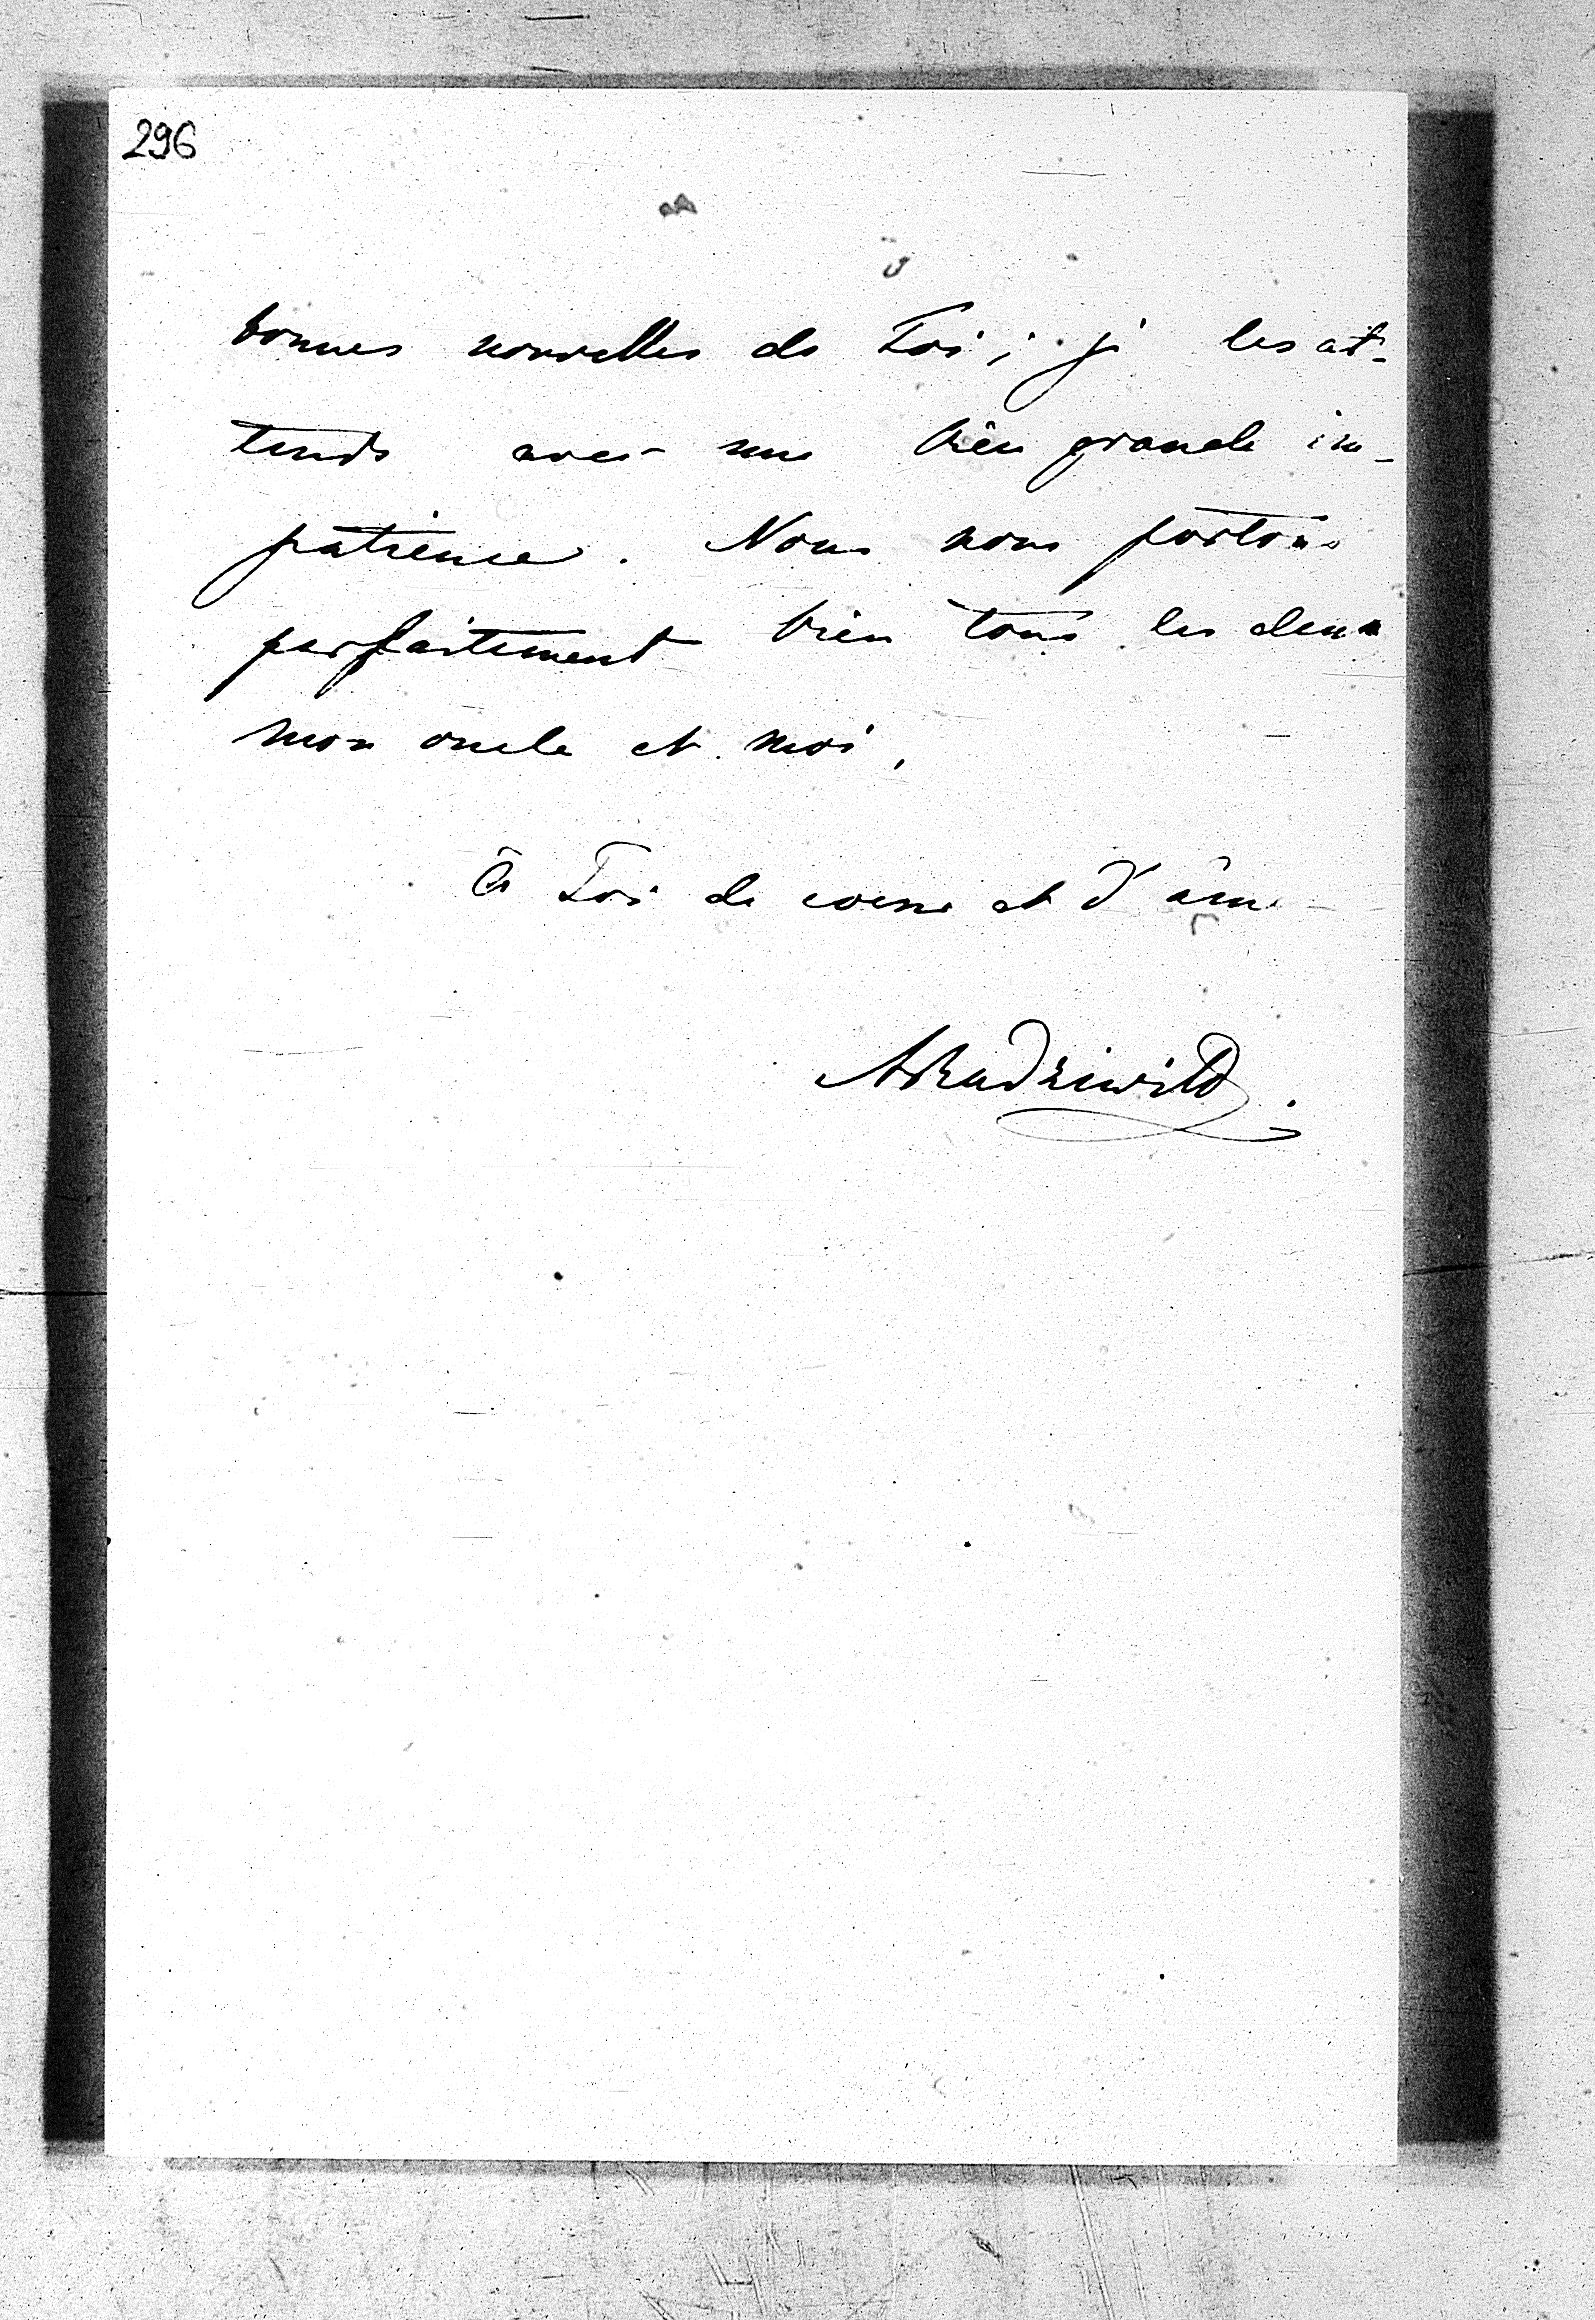 296
bonnes nouvelles de Toi; je les at-
tends avec une bien grande im-
patience. Nous nous portons
parfaitement bien tous les deux
mon oncle et moi,
à Toi de coeur et d'âme
ARadziwiłł.